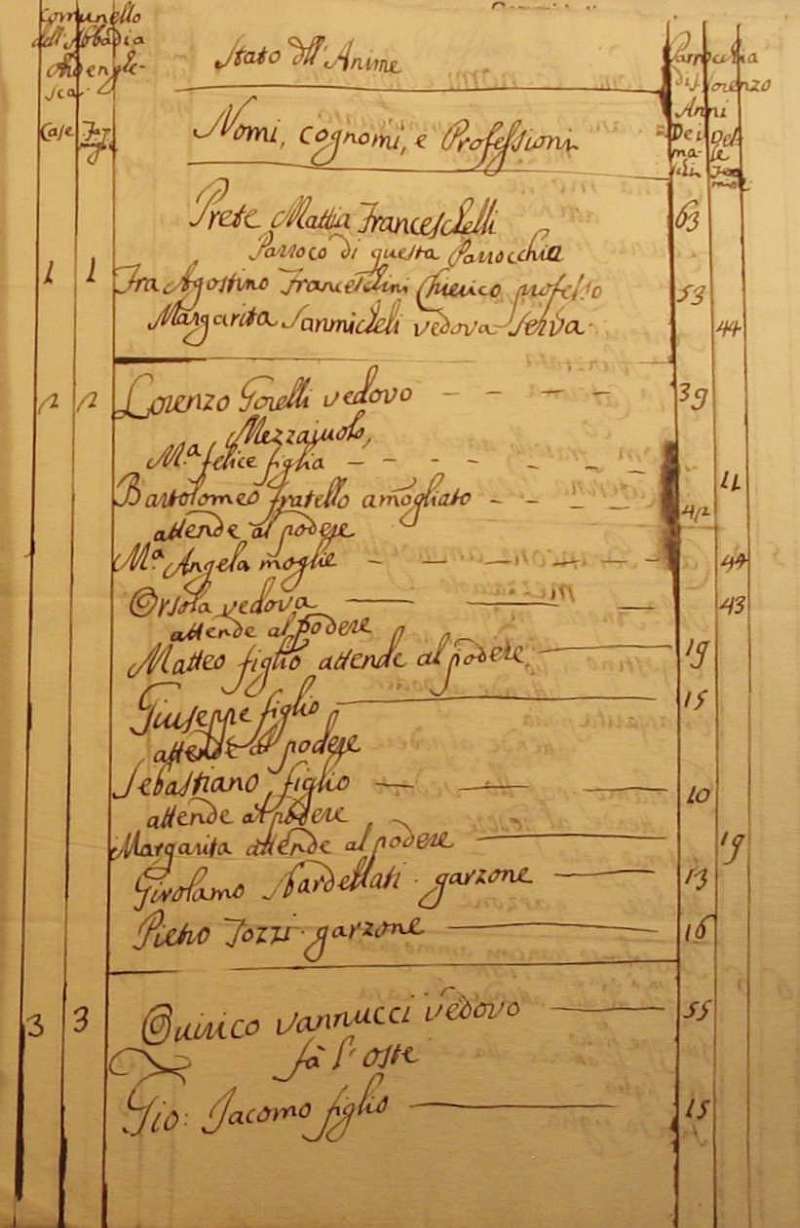 Comunello
dell'Abbadia
Ardenghe-
sca
Stato dell'Anime
Parrochia
di S. Lorenzo
Anni
Case Fa.
Nomi, Cognomi, e Professioni
Dei Ma-
schi
Del-
le Fem
mine
Prete Mattia Franceschelli 63
Parroco di questa Parrocchia
1 1 Fra Agostino Francesclini Chierico professo 53
Margarita Sanmicheli vedova Serva 44
2 2 Lorenzo Gorelli vedovo 39
Mezzajuolo,
M.a felice figlia 11
Bartolomeo fratello amogliato 42
attende al podere
M.a Angela moglie 44
Orsola vedova 43
attende al podere
Matteo figlio attende al podere 19
Giuseppe figlio 15
attende al podere
Sebastiano figlio 10
attende al podere
Margarita attende al podere 19
Girolamo Sbardellati garzone 13
Pietro Tozzi garzone 16
3 3 Quirico Vannucci vedovo 55
fà l'oste
Gio: Jacomo figlio 15